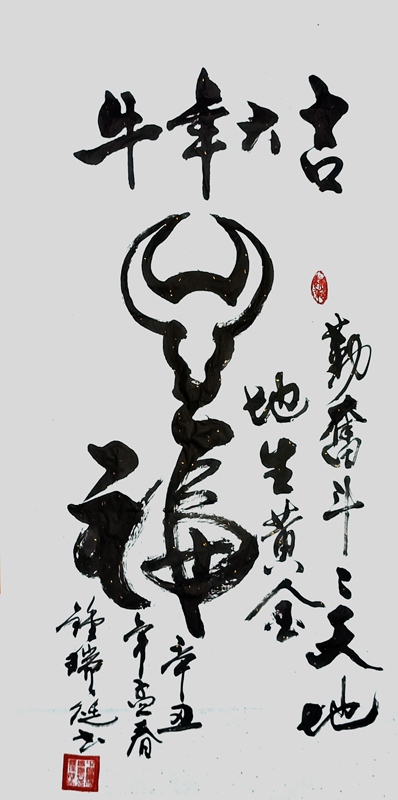 牛年大吉
福
勤奮斗〻天地
地生黄金
辛丑
年孟春
鍾瑞廷书